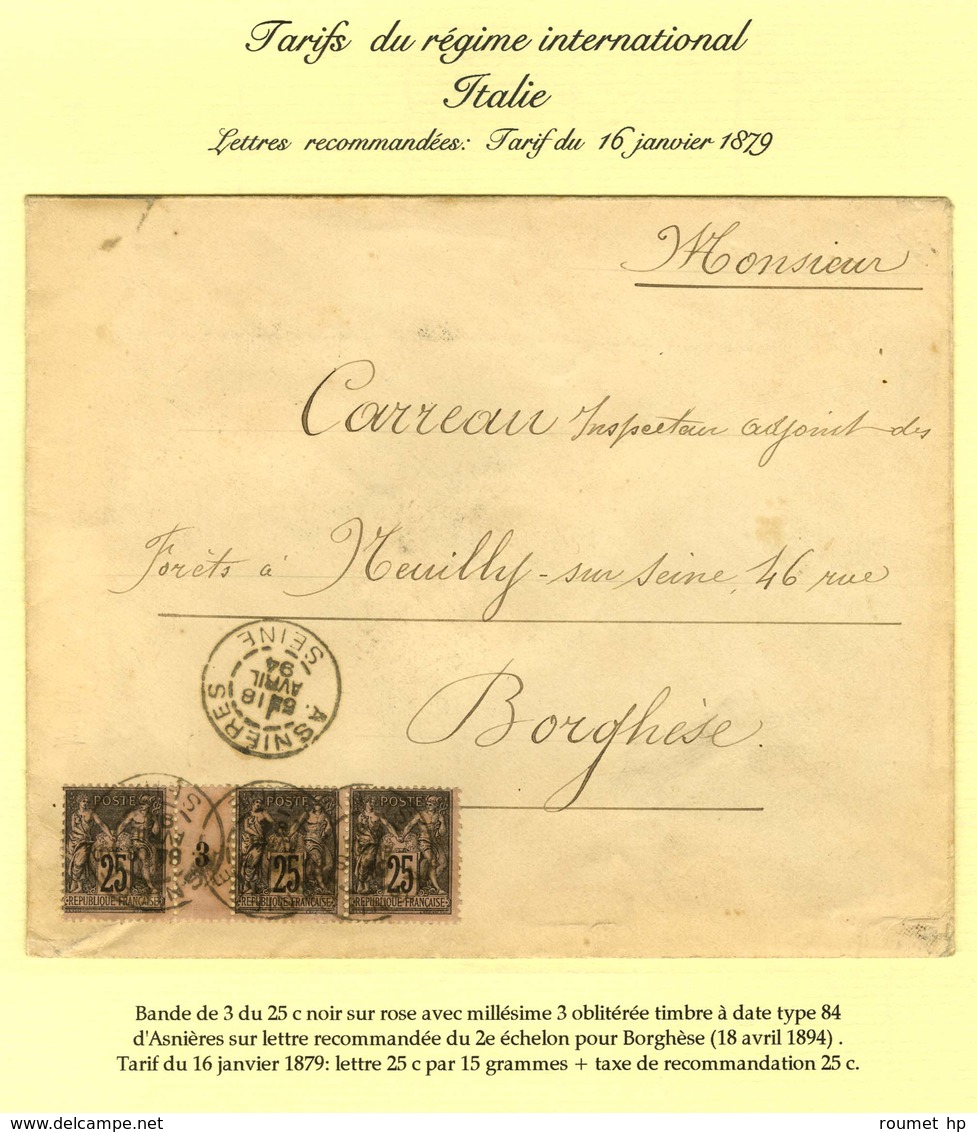 Tarifs du régime international
Italie
Lettres recommandées: Tarif du 16 janvier 1879
Monsieur
Carreau Inspecteur adjoint des
Forêts à Neuilly-sur Seine, 46 rue
Borghèse.
ASNIÈRES
18
AVRIL
94
SEINE
POSTE
25
REPUBLIQUE FRANÇAISE
3
POSTE
25
REPUBLIQUE FRANÇAISE
POSTE
25
REPUBLIQUE FRANÇAISE
Bande de 3 du 25 c noir sur rose avec millésime 3 oblitérée timbre à date type 84
d'Asnières sur lettre recommandée du 2e échelon pour Borghèse (18 avril 1894) .
Tarif du 16 janvier 1879: lettre 25 c par 15 grammes + taxe de recommandation 25 c.
roumet hp